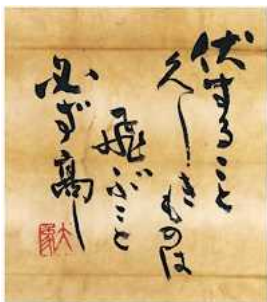 伏すること
久しきものは
飛ぶこと
必ず高し